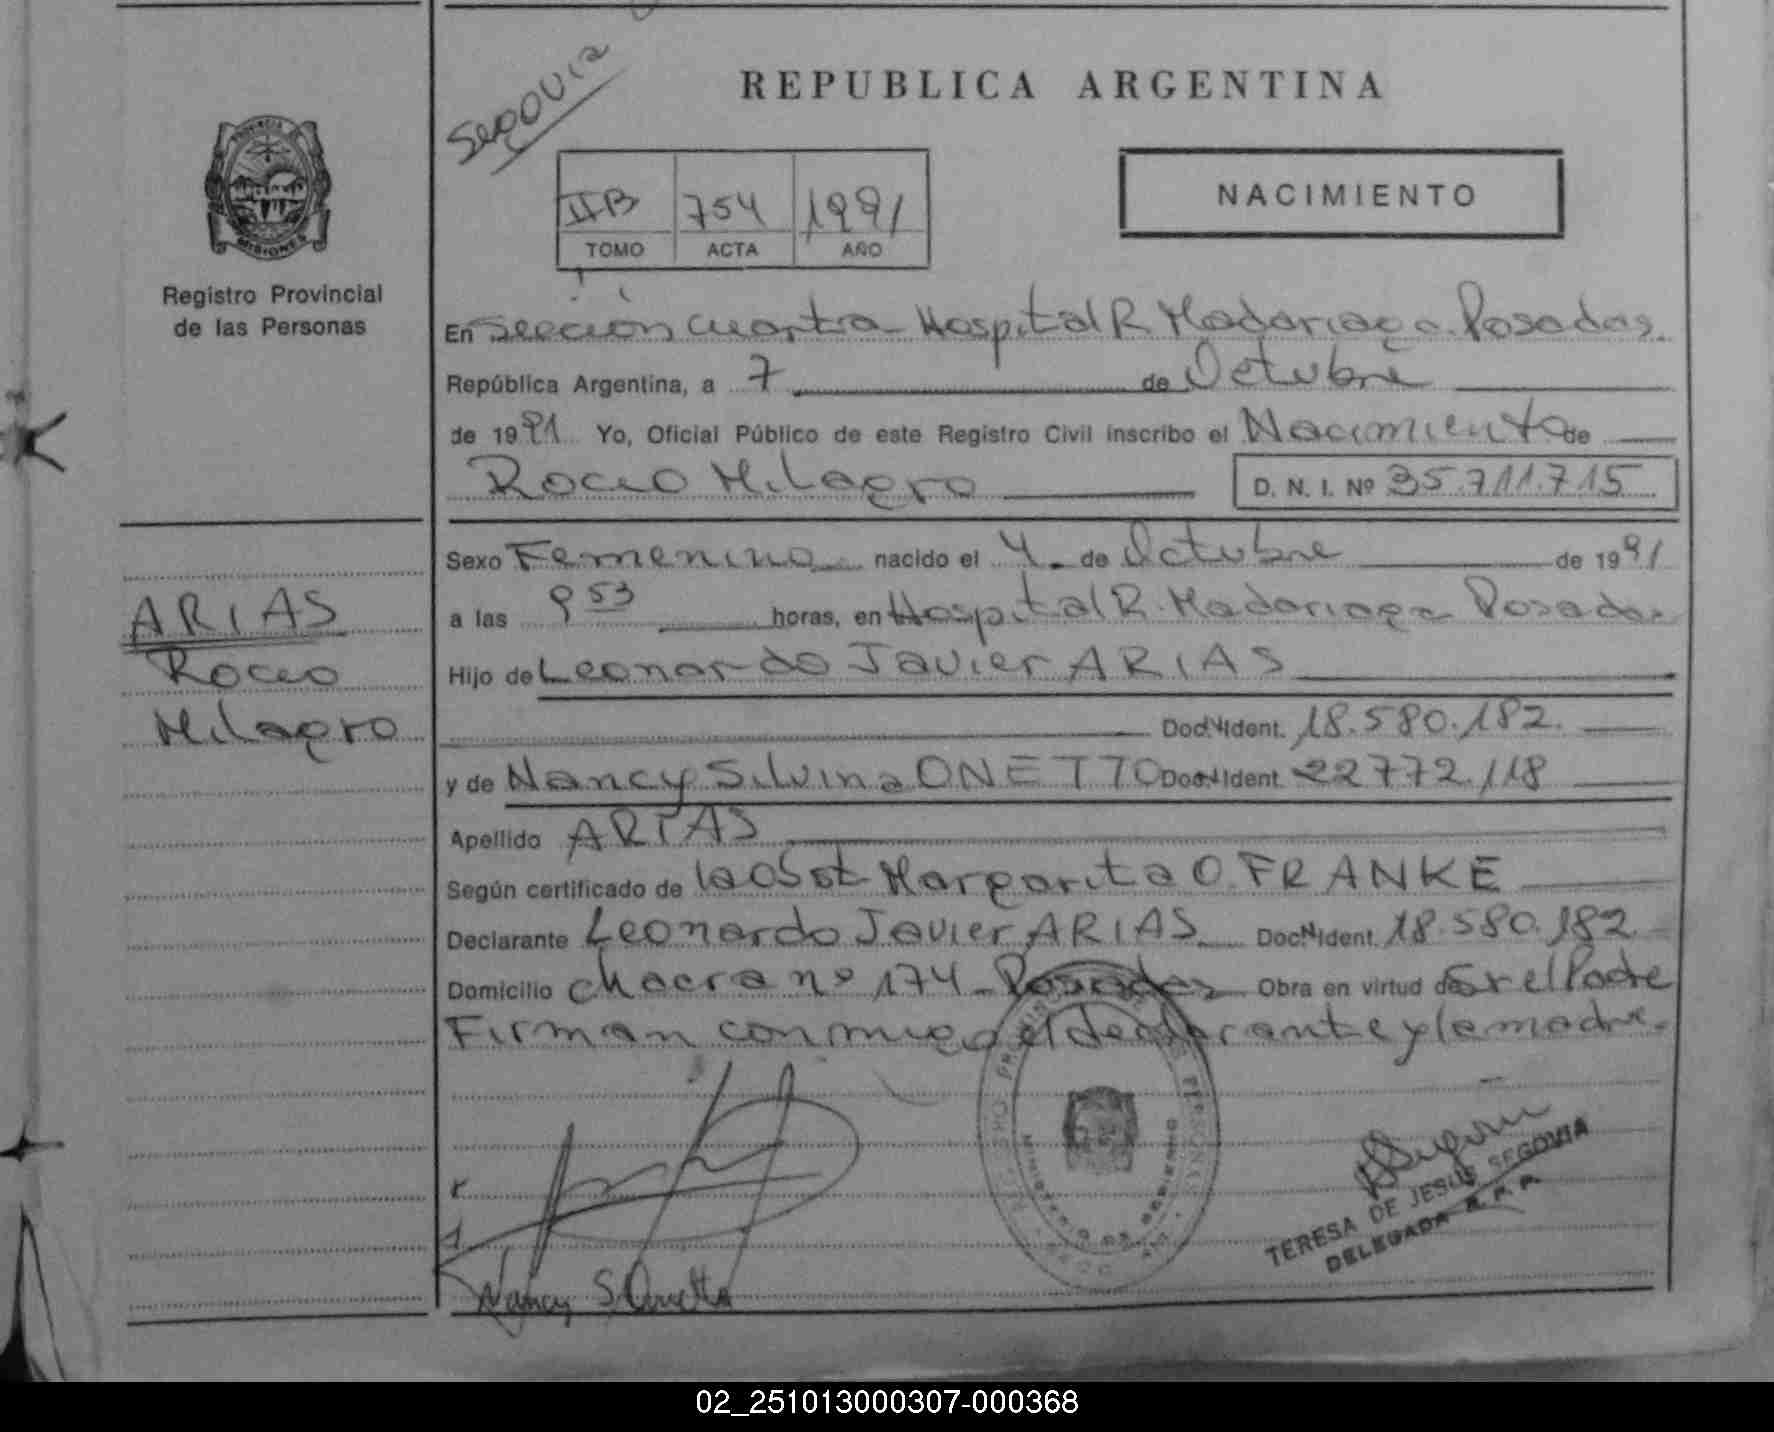 Segovia
REPUBLICA ARGENTINA
PROVINCIA DE
MISIONES
IIB 754 1991
TOMO ACTA AÑO
NACIMIENTO
Registro Provincial
de las Personas
En Sección Cuarta Hospital R. Madariaga Posadas.
República Argentina, a 7 de Octubre
de 1991 Yo, Oficial Público de este Registro Civil inscribo el Nacimiento de
Rocio Milagro D. N. I. Nº 35.711.715
Sexo Femenino nacido el 4 de Octubre de 1991
a las 9 53 horas, en Hospital R. Madariaga Posadas
Hijo de Leonardo Javier ARIAS
Doc. Ident. 18.580.182.
y de Nancy Silvina ONETTO Doc. Ident. 22772.118
Apellido ARIAS
Según certificado de la Obst. Margarita O. FRANKE
Declarante Leonardo Javier ARIAS Doc. Ident. 18.580.182
Domicilio Chacra nº 174 Posadas Obra en virtud de Ser el Padre
Firman conmigo el declarante y la madre.
ARIAS
Rocio
Milagro
Nancy S. Onetto
MINISTERIO DE GOBIERNO
TERESA DE JESUS SEGOVIA
DELEGADA R. P. P.
02_251013000307-000368